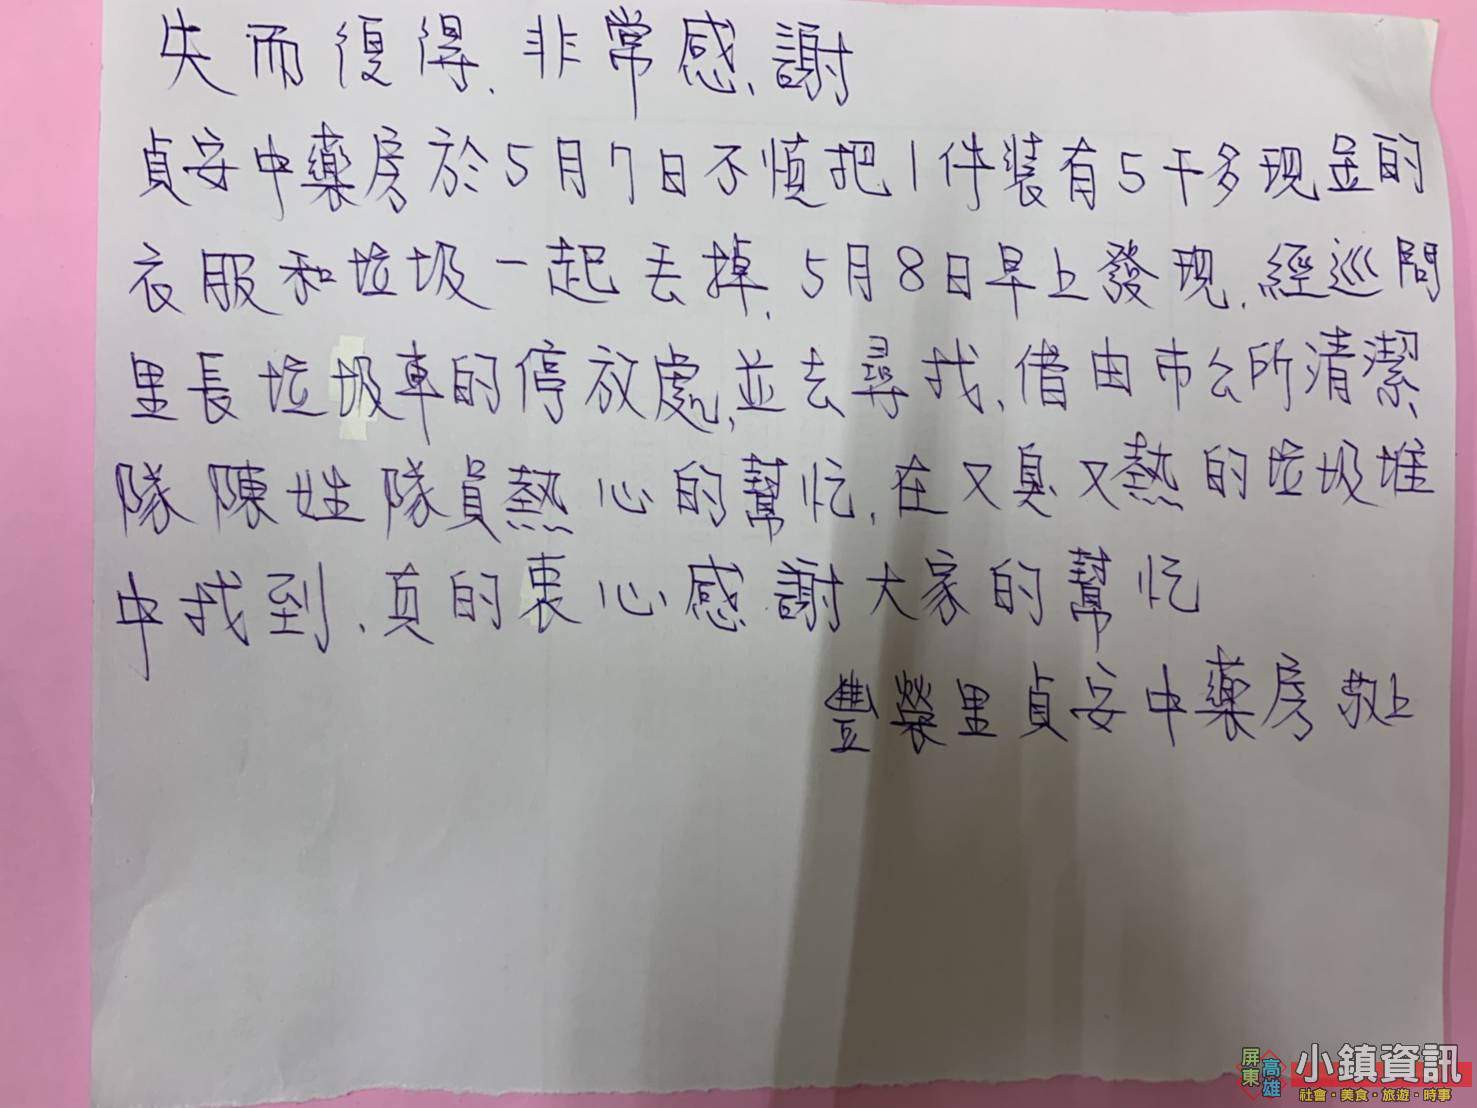 失而復得、非常感謝
貞安中藥房於5月7日不慎把1件裝有5千多現金的
衣服和垃圾一起丟掉、5月8日早上發現、經巡問
里長垃圾車的停放處、並去尋找、借由市公所清潔
隊陳姓隊員熱心的幫忙、在又臭又熱的垃圾堆
中找到、真的衷心感謝大家的幫忙
豐榮里貞安中藥房 敬上
屏東 高雄 小鎮資訊
社會・美食・旅遊・時事